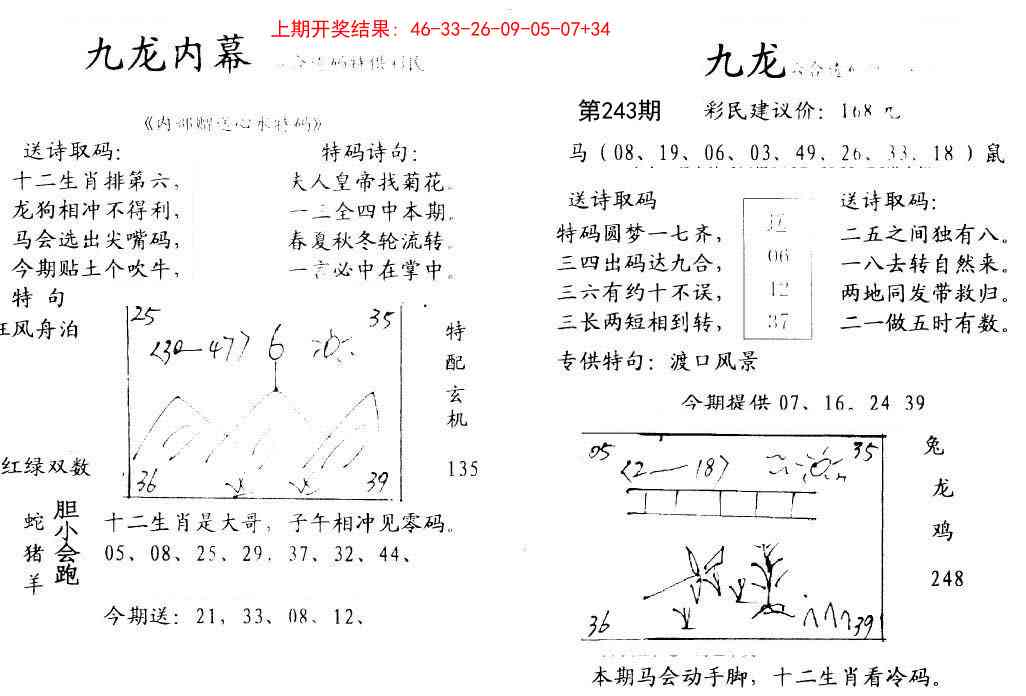 上期开奖结果：46-33-26-09-05-07+34
九龙内幕
送诗取码：
十二生肖排第六，
龙狗相冲不得利，
马会选出尖嘴码，
今期贴土个吹牛，
特码诗句：
夫人皇帝找菊花。
一二全四中本期。
春夏秋冬轮流转。
一言必中在掌中。
特句
狂风舟泊
25
35
<30—47> 6
36
39
特配玄机
135
红绿双数
蛇猪羊
胆小会跑
十二生肖是大哥，子午相冲见零码。
05、08、25、29、37、32、44、
今期送：21，33、08、12、
九龙
第243期
彩民建议价：168元
马（08、19、06、03、49、26、33、18）鼠
送诗取码
特码圆梦一七齐，
三四出码达九合，
三六有约十不误，
三长两短相到转，
06
12
37
送诗取码：
二五之间独有八。
一八去转自然来。
两地同发带救归。
二一做五时有数。
专供特句：渡口风景
今期提供 07、16。24 39
05
35
<2—18>
36
39
兔
龙
鸡
248
本期马会动手脚，十二生肖看冷码。